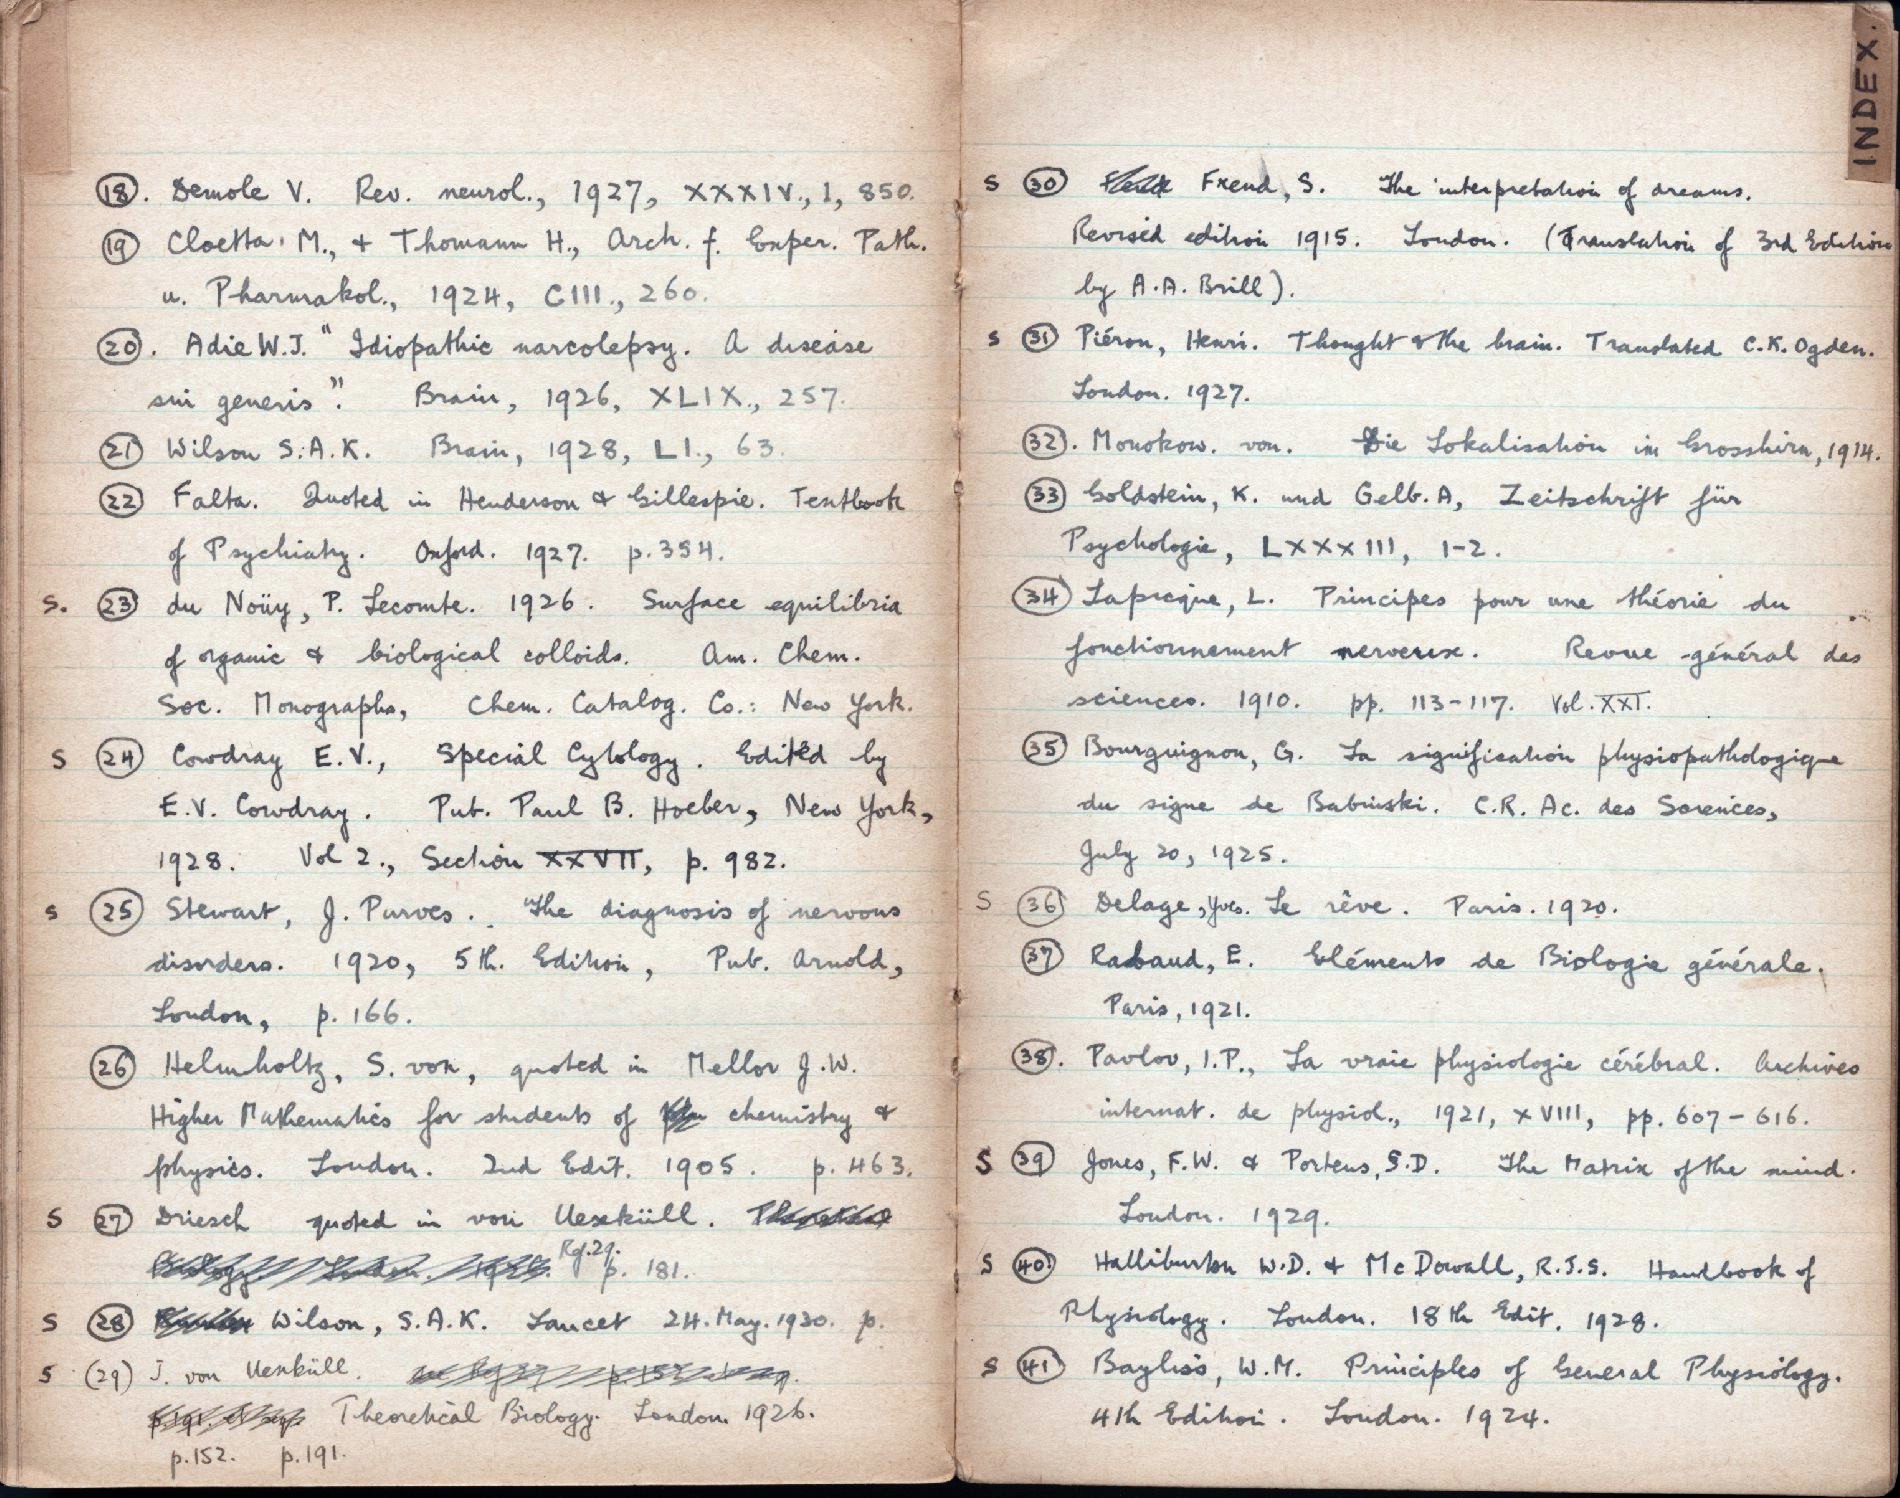 18. Demole V. Rev. neurol., 1927, XXXIV., 1, 850.
19 Cloetta, M., & Thomann H., Arch. f. Exper. Path.
u. Pharmakol., 1924, CIII., 260.
20. Adie W.J. "Idiopathic narcolepsy. A disease
sui generis". Brain, 1926, XLIX., 257.
21 Wilson S.A.K. Brain, 1928, LI., 63.
22 Falta. Quoted in Henderson & Gillespie. Textbook
of Psychiatry. Oxford. 1927. p.354.
S. 23 du Noüy, P. Lecomte. 1926. Surface equilibria
of organic & biological colloids. Am. Chem.
Soc. Monographs, Chem. Catalog. Co.: New York.
S 24 Cowdray E.V., Special Cytology. Edited by
E.V. Cowdray. Pub. Paul B. Hoeber, New York,
1928. Vol 2., Section XXVII, p. 982.
S 25 Stewart, J. Purves. The diagnosis of nervous
disorders. 1920, 5th. Edition, Pub. Arnold,
London, p. 166.
26 Helmholtz, S. von, quoted in Mellor J.W.
Higher Mathematics for students of chemistry &
physics. London. 2nd Edit. 1905. p. 463.
S 27 Driesch quoted in von Uexküll.
Rf.29. p. 181.
S 28 Wilson, S.A.K. Lancet 24.May.1930. p.
S (29) J. von Uexküll.
Theoretical Biology. London. 1926.
p.152. p.191.
INDEX.
S 30 Freud, S. The interpretation of dreams.
Revised edition 1915. London. (Translation of 3rd Edition
by A.A. Brill).
S 31 Piéron, Henri. Thought & the brain. Translated C.K. Ogden.
London. 1927.
32. Monokow. von. Die Lokalisation im Grosshirn, 1914.
33 Goldstein, K. und Gelb. A, Zeitschrift für
Psychologie, LXXXIII, 1-2.
34 Lapicque, L. Principes pour une théorie du
fonctionnement nerveux. Revue général des
sciences. 1910. pp. 113-117. Vol. XXI.
35 Bourguignon, G. La signification physiopathologique
du signe de Babinski. C.R. Ac. des Sciences,
July 20, 1925.
S 36 Delage, Yves. Le rêve. Paris. 1920.
37 Rabaud, E. Eléments de Biologie générale.
Paris, 1921.
38. Pavlov, I.P., La vraie physiologie cérébral. Archives
internat. de physiol., 1921, XVIII, pp. 607-616.
S 39 Jones, F.W. & Porteus, S.D. The Matrix of the mind.
London. 1929.
S 40. Halliburton W.D. & McDowall, R.J.S. Handbook of
Physiology. London. 18th Edit. 1928.
S 41 Bayliss, W.M. Principles of General Physiology.
4th Edition. London. 1924.